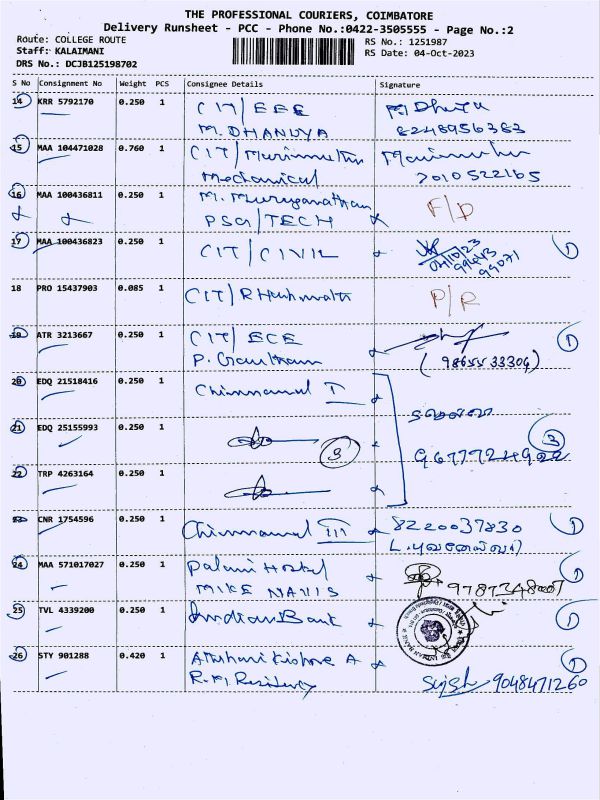 THE PROFESSIONAL COURIERS, COIMBATORE
Delivery Runsheet - PCC - Phone No.:0422-3505555 - Page No.:2
Route: COLLEGE ROUTE
RS No.: 1251987
Staff: KALAIMANI
RS Date: 04-Oct-2023
DRS No.: DCJB125198702
S No Consignment No Weight PCS Consignee Details Signature
14 KRR 5792170 0.250 1 CIT/EEE
M. DHANUYA
8248956383
15 MAA 104471028 0.760 1 CIT/Marimuthu
Mechanical 7010522165
16 MAA 100436811 0.250 1 M. Muruganatham F/D
PSG/TECH
17 MAA 100436823 0.250 1 CIT/CIVIL 04/10/23 1
99443
99071
18 PRO 15437903 0.085 1 CIT/R P/R
19 ATR 3213667 0.250 1 CIT/ECE 1
P. Gowtham (9865533304)
20 EDQ 21518416 0.250 1 Chinnamal I
21 EDQ 25155993 0.250 1 3 3
9677724922
22 TRP 4263164 0.250 1
23 CNR 1754596 0.250 1 Chinnamal III 8220037830 1
24 MAA 571017027 0.250 1 Palani Hostel 1
MIKE NAVIS
25 TVL 4339200 0.250 1 Indian Bank 1
26 STY 901288 0.420 1 Kishore A 1
R.M. Residency 9048471260